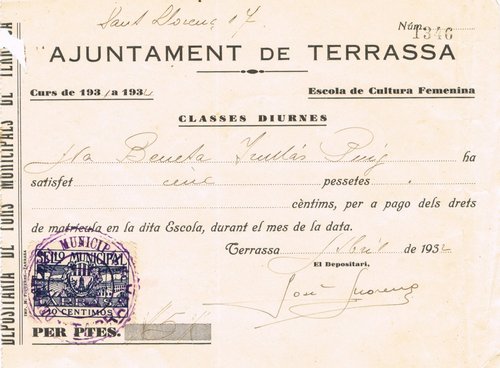 Sant Llorenç 17
Núm. 1346
AJUNTAMENT DE TERRASSA
Curs de 1931 a 1932
Escola de Cultura Femenina
CLASSES DIURNES
Na Beneta Trullás Puig ha
satisfet cinc pessetes
cèntims, per a pago dels drets
de matrícula en la dita Escola, durant el mes de la data.
Terrassa Abril de 1932
El Depositari,
José
SELLO MUNICIPAL
10 CENTIMOS
PER PTES. 5
DEPOSITARIA DE FONS MUNICIPALS DE TERRASSA